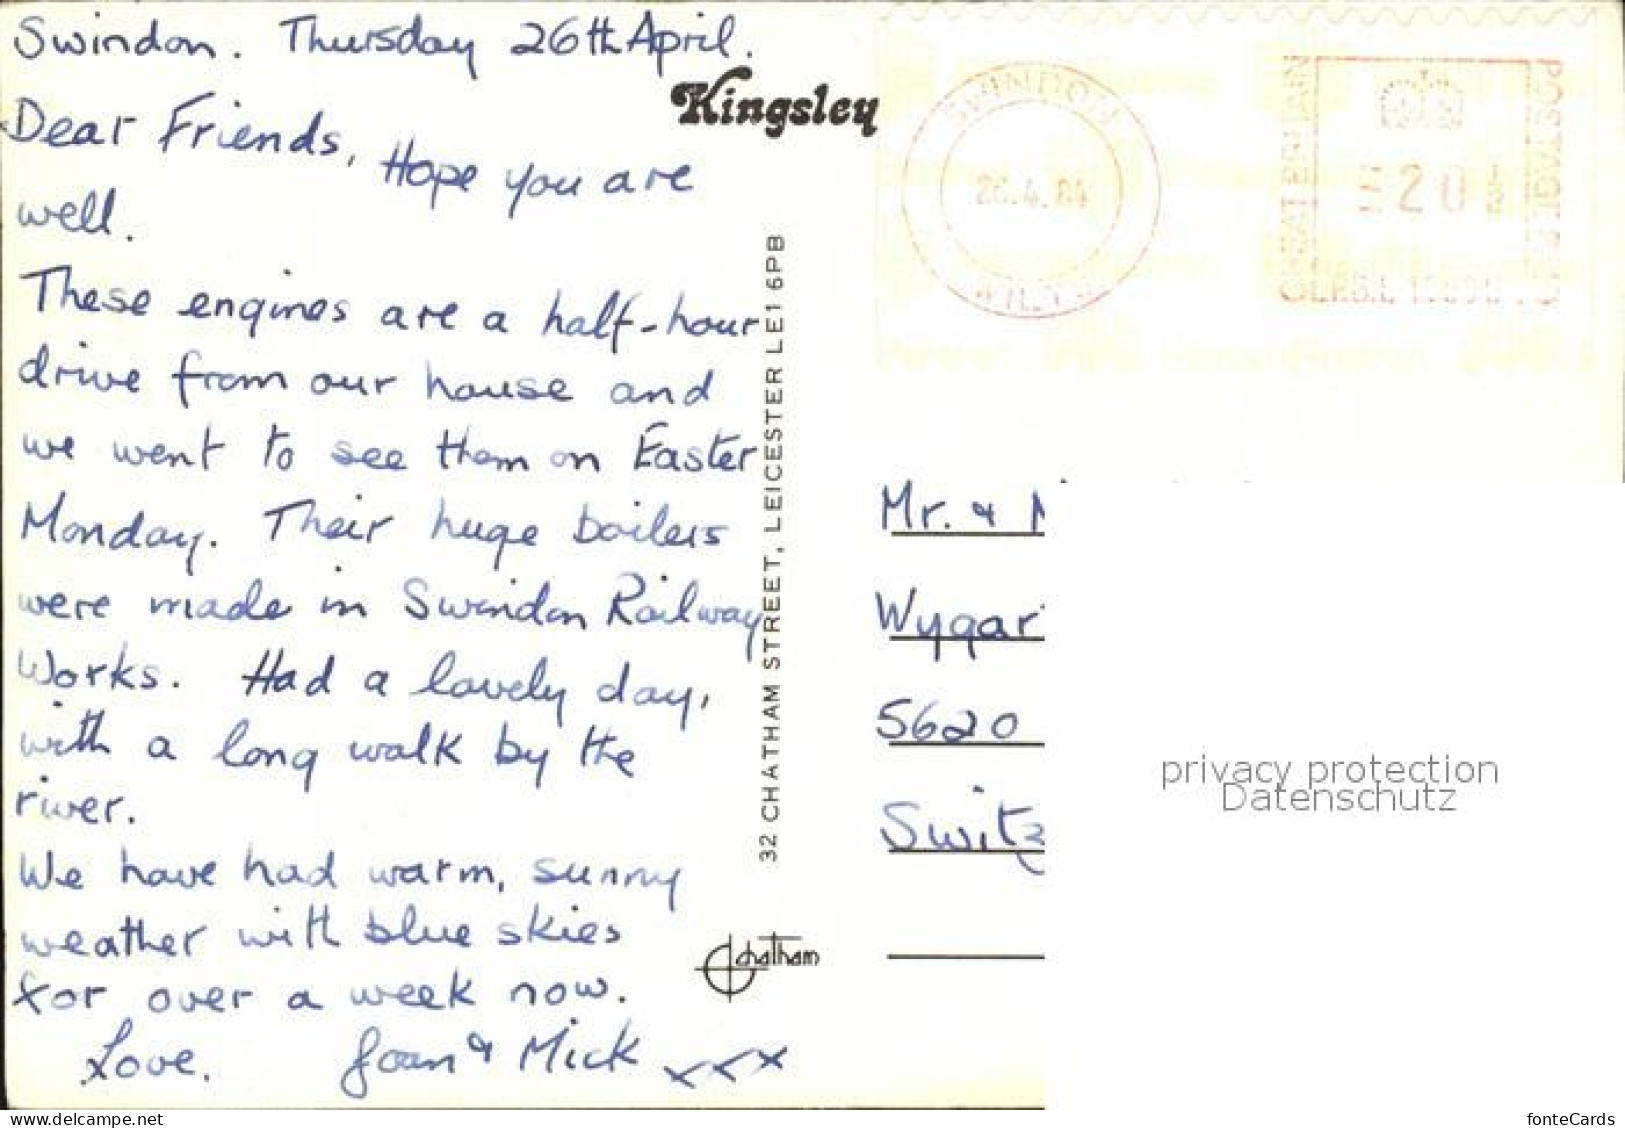 Swindon. Thursday 26th April.
Kingsley
Dear Friends, Hope you are
well.
These engines are a half-hour
drive from our house and
we went to see them on Easter
Monday. Their huge boilers
were made in Swindon Railway
Works. Had a lovely day,
with a long walk by the
river.
We have had warm, sunny
weather with blue skies
for over a week now.
Love. Joan & Mick xxx
32 CHATHAM STREET, LEICESTER LE1 6PB
Chatham
SWINDON
26.4.84
WILTS
GREAT BRITAIN
20½
POSTAGE PAID
Mr. &
Wygar
5620
Switz
privacy protection
Datenschutz
ansichtskarten-center.de
fonteCards